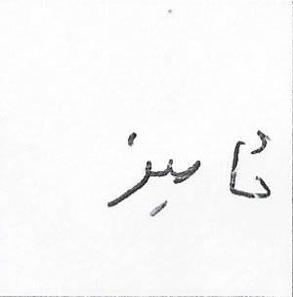 تاميز